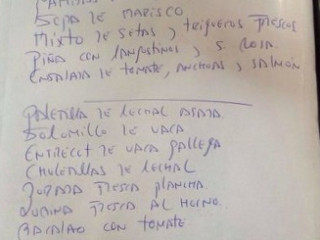 SOPA DE MARISCO
MIXTO DE SETAS y TRIGUEROS FRESCOS
PIÑA CON LANGOSTINOS y S. ROSA.
ENSALADA DE TOMATE, ANCHOAS y SALMON
PALETILLA DE LECHAL ASADA.
SOLOMILLO DE VACA
ENTRECOT DE VACA GALLEGA
CHULETILLAS DE LECHAL
DORADA FRESCA PLANCHA.
LUBINA FRESCA AL HORNO.
BACALAO CON TOMATE